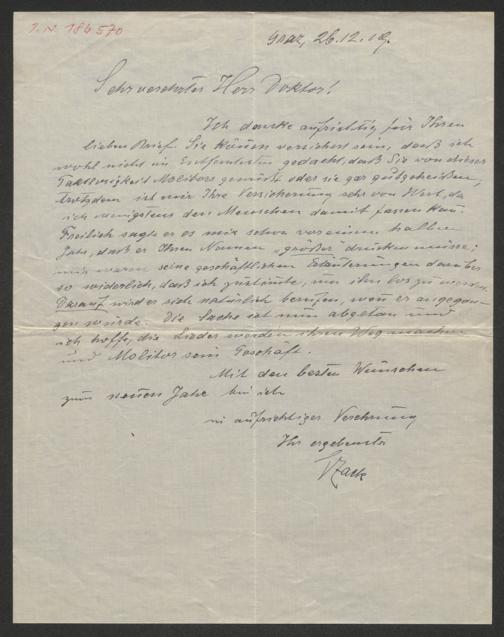 I. N. 186570
Graz, 26.12.19.
Sehr verehrter Herr Doktor!
Ich danke aufrichtig für Ihren
lieben Brief. Sie können versichert sein, daß ich
wohl nicht im Entferntesten gedacht, daß Sie von dieser
Taktlosigkeit Molitors gewußt oder sie gar gutgeheißen,
trotzdem ist mir Ihre Versicherung sehr von Wert, da
ich wenigstens den Menschen damit fassen kann.
Freilich sagte er es mir schon vor einem halben
Jahr, daß er Ihren Namen „größer" drucken müsse;
mir waren seine geschäftlichen Erläuterungen darüber
so widerlich, daß ich zustimmte, um ihn los zu werden.
Darauf wird er sich natürlich berufen, wenn er angegan-
gen würde. Die Sache ist nun abgetan und
ich hoffe, die Lieder werden ihren Weg machen
und Molitor sein Geschäft.
Mit den besten Wünschen
zum neuen Jahr bin ich
in aufrichtiger Verehrung
Ihr ergebenster
VZack